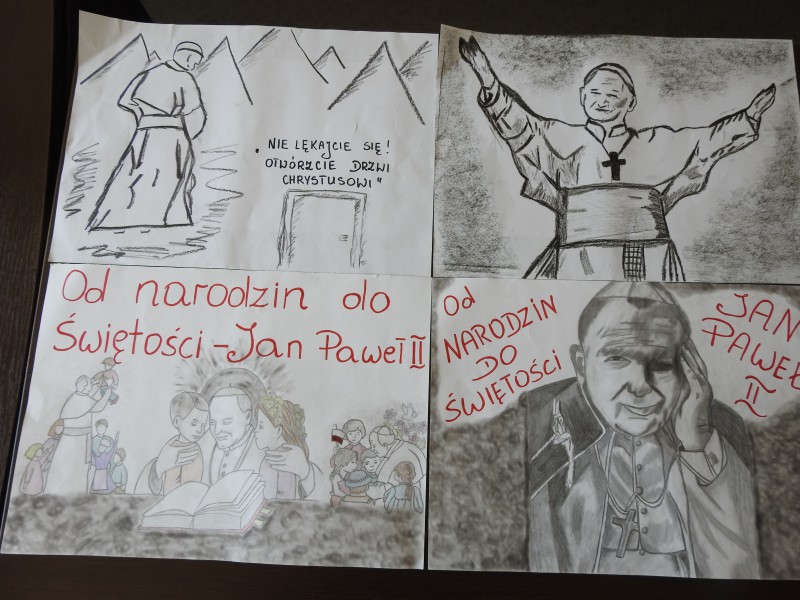 „NIE LĘKAJCIE SIĘ!
OTWÓRZCIE DRZWI
CHRYSTUSOWI"
Od narodzin do
Świętości - Jan Paweł II
Od
NARODZIN
DO
ŚWIĘTOŚCI
JAN
PAWEŁ
II